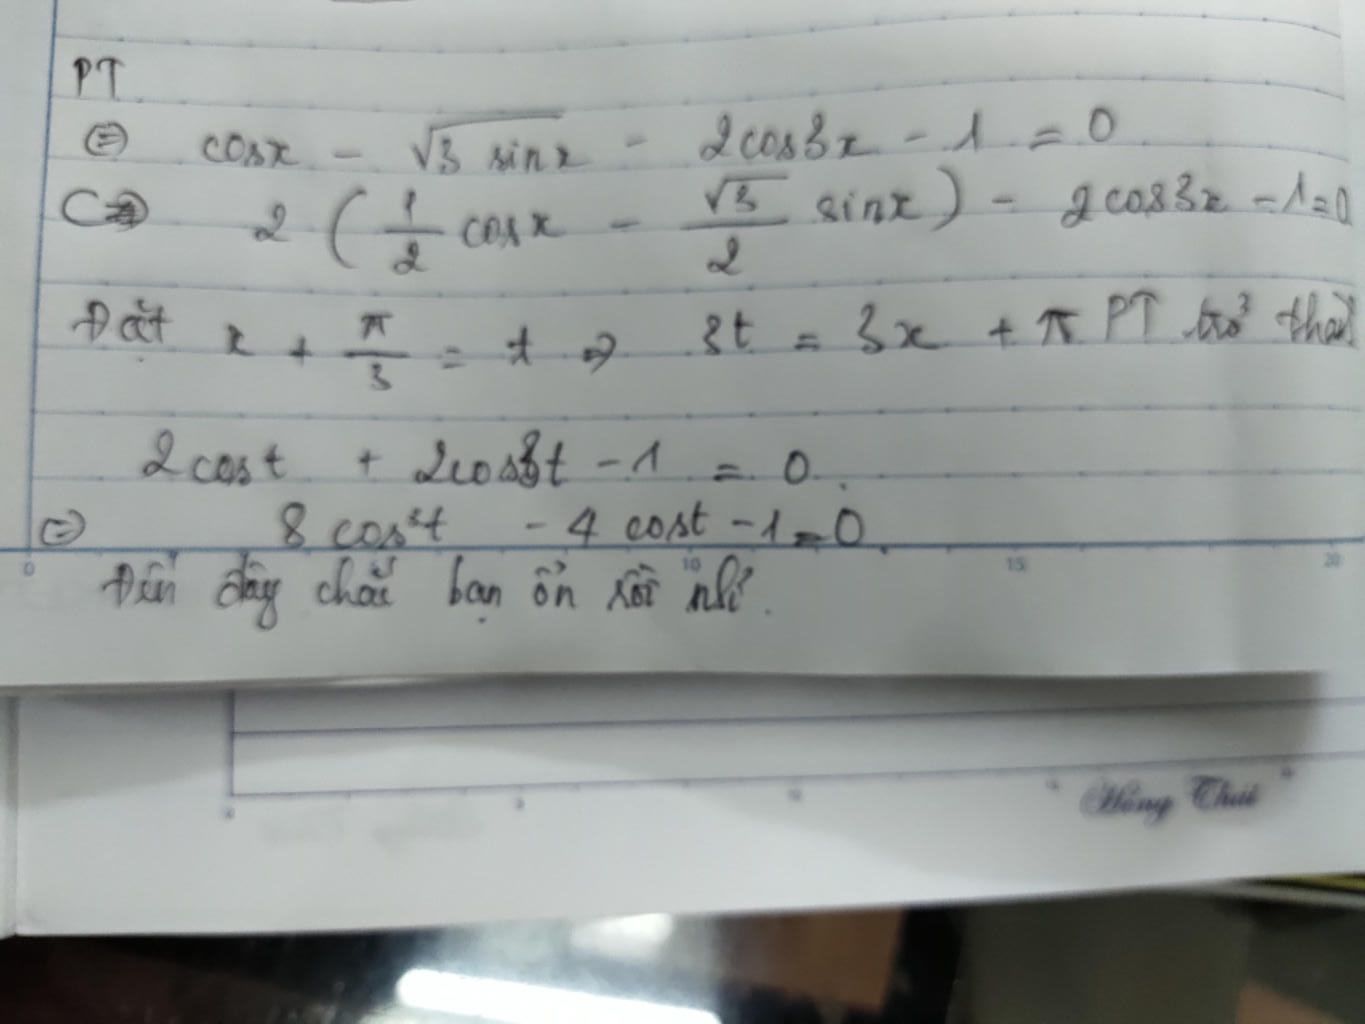 PT
⇔ cosx - √3 sinx - 2cos3x - 1 = 0
⇔ 2 ( 1/2 cosx - √3/2 sinx ) - 2cos3x - 1 = 0
Đặt x + π/3 = t ⇒ 3t = 3x + π PT trở thàn
2cost + 2cos3t - 1 = 0.
⇔ 8cos³t - 4cost - 1 = 0
0 10 15 20
Đến đây chắc bạn ổn rồi nhỉ.
Hồng